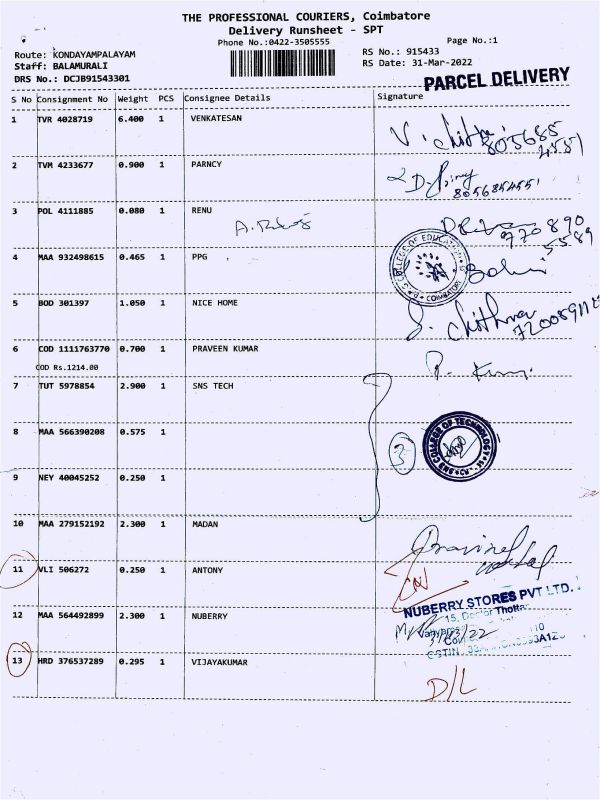 THE PROFESSIONAL COURIERS, Coimbatore
Delivery Runsheet - SPT
Phone No.:0422-3505555
Page No.:1
Route: KONDAYAMPALAYAM
RS No.: 915433
Staff: BALAMURALI
RS Date: 31-Mar-2022
DRS No.: DCJB91543301
PARCEL DELIVERY
S No Consignment No Weight PCS Consignee Details Signature
1 TVR 4028719 6.400 1 VENKATESAN
2 TVM 4233677 0.900 1 PARNCY
3 POL 4111885 0.080 1 RENU
4 MAA 932498615 0.465 1 PPG
5 BOD 301397 1.050 1 NICE HOME
6 COD 1111763770 0.700 1 PRAVEEN KUMAR
COD Rs.1214.00
7 TUT 5978854 2.900 1 SNS TECH
8 MAA 566390208 0.575 1
3
SNS COLLEGE OF TECHNOLOGY
9 NEY 40045252 0.250 1
10 MAA 279152192 2.300 1 MADAN
11 VLI 506272 0.250 1 ANTONY
12 MAA 564492899 2.300 1 NUBERRY
NUBERRY STORES PVT LTD.
13 HRD 376537289 0.295 1 VIJAYAKUMAR
D/L